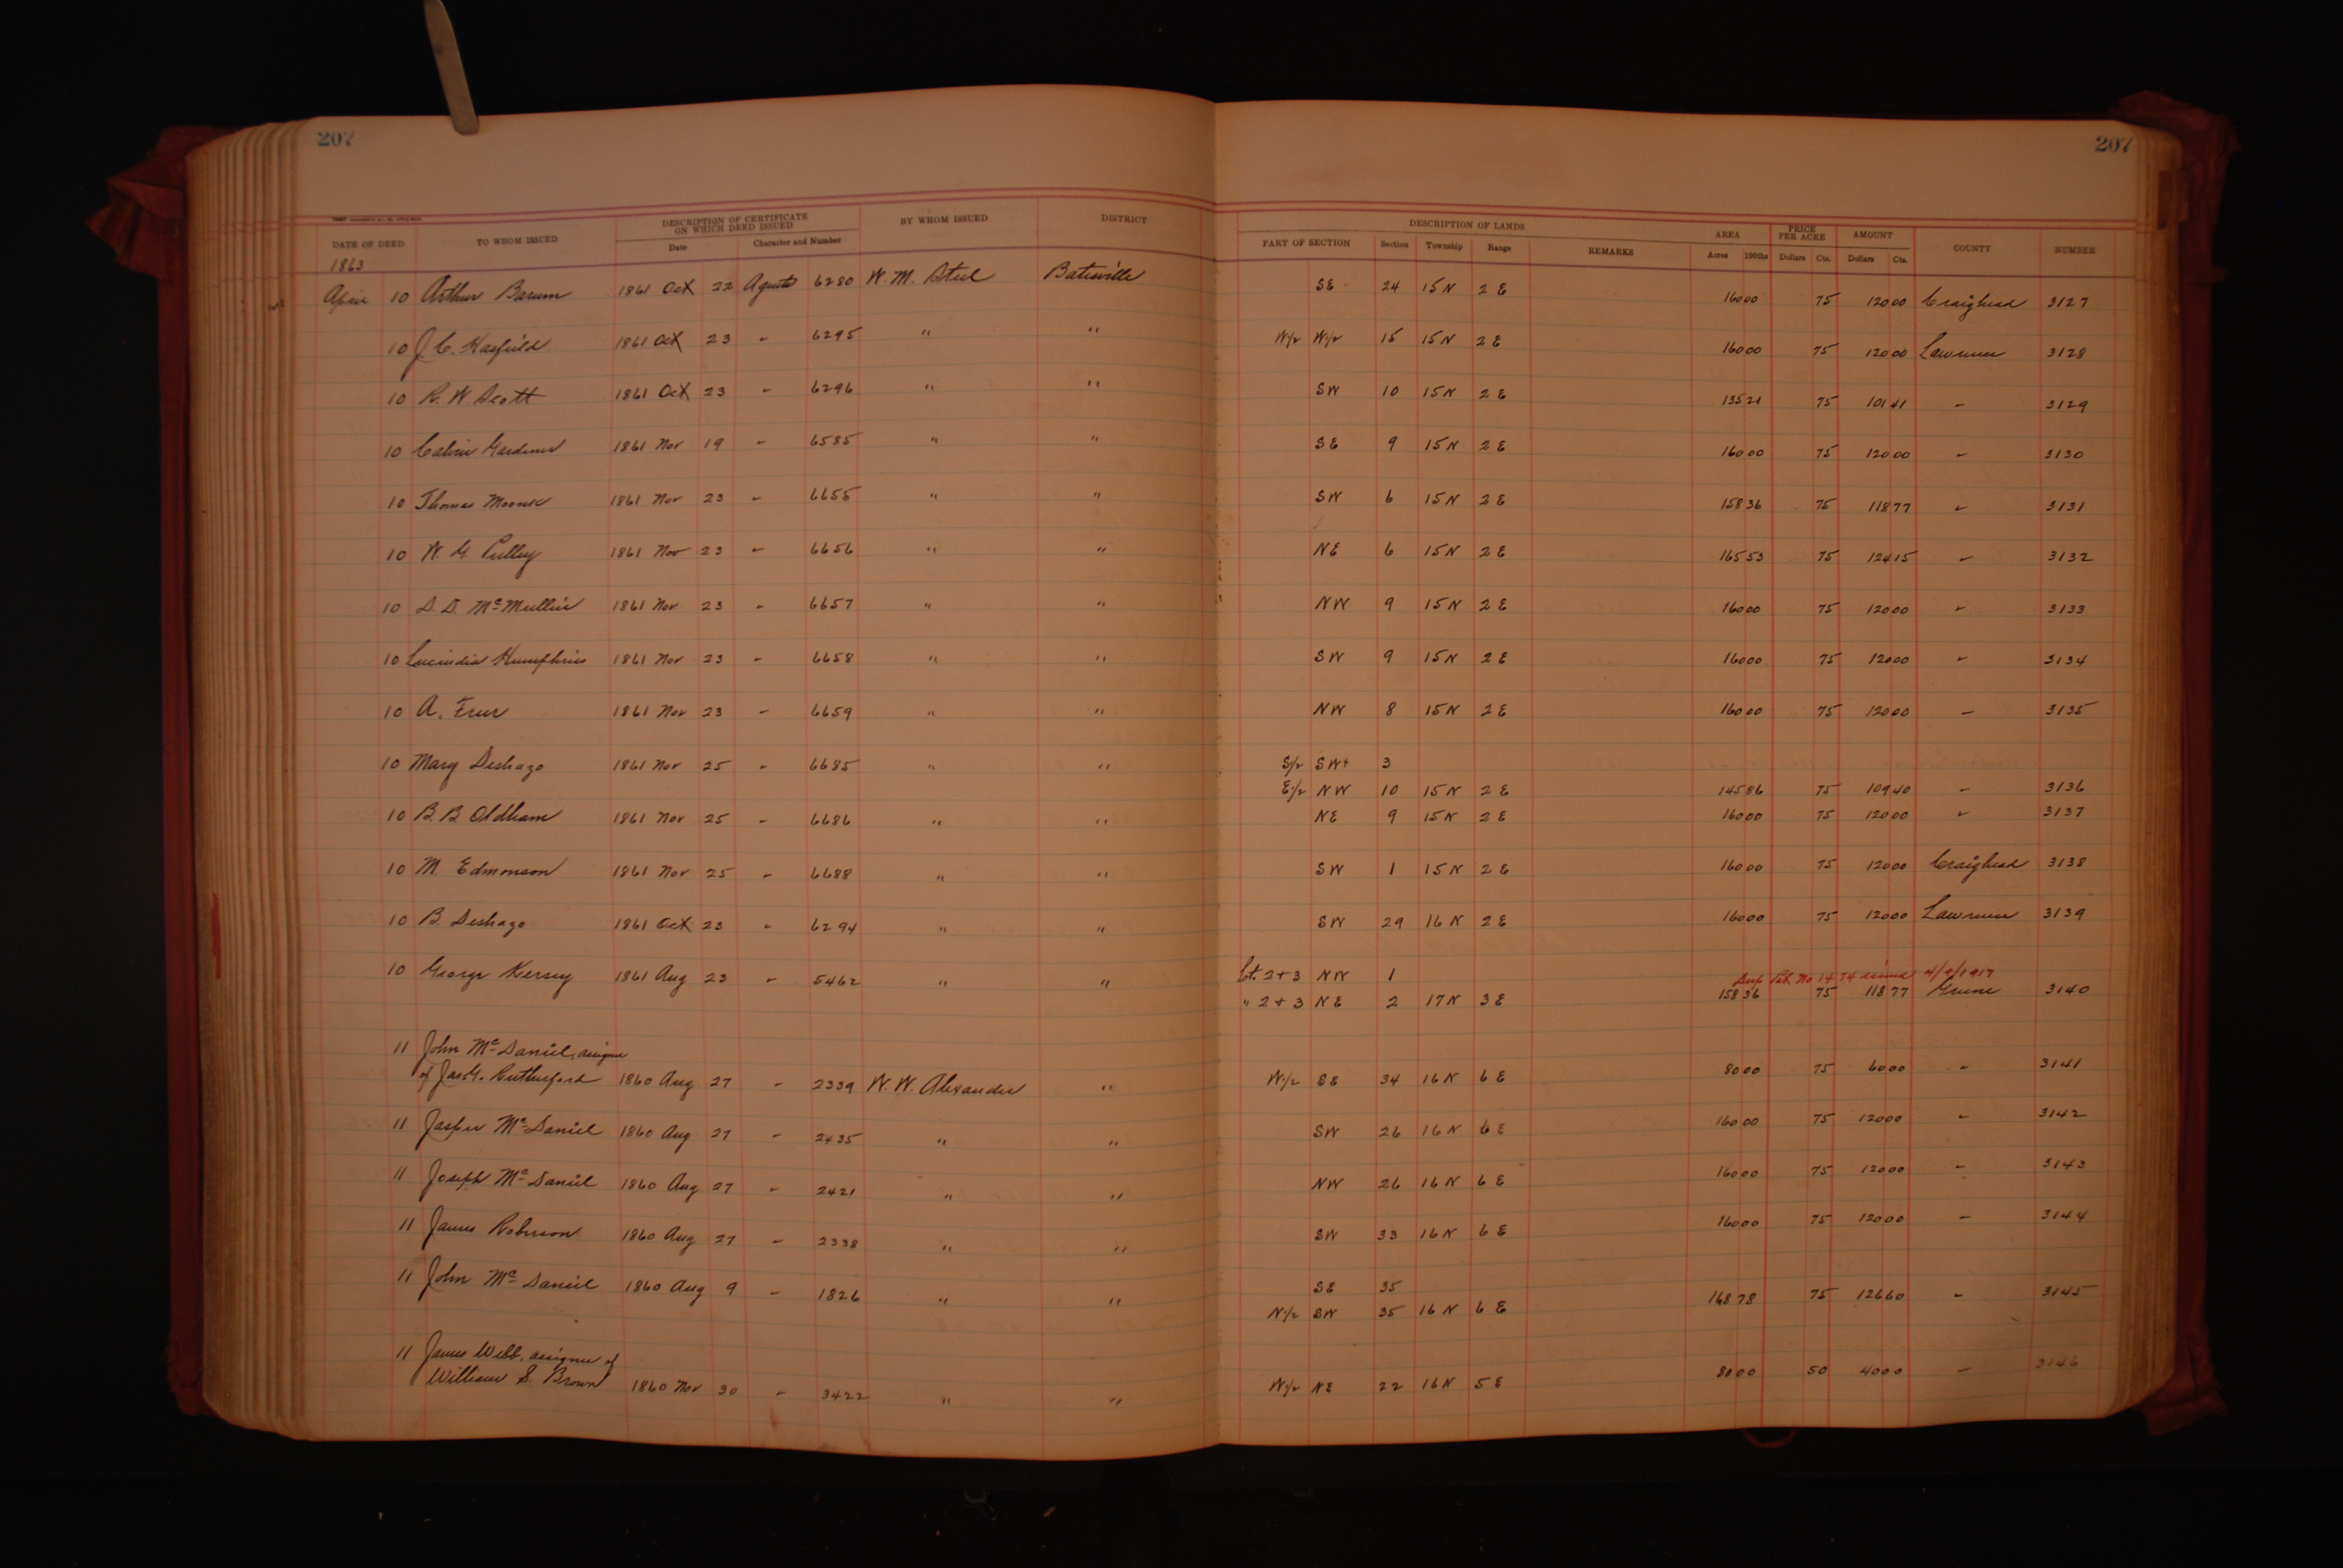 207 207
DATE OF DEED TO WHOM ISSUED DESCRIPTION OF CERTIFICATE ON WHICH DEED ISSUED Date Character and Number BY WHOM ISSUED DISTRICT DESCRIPTION OF LANDS PART OF SECTION Section Township Range REMARKS AREA Acres 100ths PRICE PER ACRE Dollars Cts. AMOUNT Dollars Cts. COUNTY NUMBER
1863
April 10 Arthur Barum 1861 Oct 22 Agents 6280 W. M. Steel Batesville SE 24 15 N 2 E 160 00 75 120 00 Craighead 3127
10 J. C. Hasfield 1861 Oct 23 " 6295 " " W/2 W/2 15 15 N 2 E 160 00 75 120 00 Lawrence 3128
10 R. W Scott 1861 Oct 23 " 6296 " " SW 10 15 N 2 E 135 21 75 101 41 " 3129
10 Calvin Gardner 1861 Nov 19 " 6585 " " SE 9 15 N 2 E 160 00 75 120 00 " 3130
10 Thomas 1861 Nov 23 " 6655 " " SW 6 15 N 2 E 158 36 75 118 77 " 3131
10 W. G. 1861 Nov 23 " 6656 " " NE 6 15 N 2 E 165 53 75 124 15 " 3132
10 D. D. McMullin 1861 Nov 23 " 6657 " " NW 9 15 N 2 E 160 00 75 120 00 " 3133
10 Lucindia Humphries 1861 Nov 23 " 6658 " " SW 9 15 N 2 E 160 00 75 120 00 " 3134
10 A. Freer 1861 Nov 23 " 6659 " " NW 8 15 N 2 E 160 00 75 120 00 " 3135
10 Mary Deshazo 1861 Nov 25 " 6685 " " S/2 SW+ 3
E/2 NW 10 15 N 2 E 145 86 75 109 40 " 3136
10 B. B. Oldham 1861 Nov 25 " 6686 " " NE 9 15 N 2 E 160 00 75 120 00 " 3137
10 M. Edmonson 1861 Nov 25 " 6688 " " SW 1 15 N 2 E 160 00 75 120 00 Craighead 3138
10 B. Deshazo 1861 Oct 23 " 6294 " " SW 29 16 N 2 E 160 00 75 120 00 Lawrence 3139
10 George Kersey 1861 Aug 23 " 5462 " " Lt. 2+3 NW 1
Dup Pat No 1474 issued 4/9/1917
" 2+3 NE 2 17 N 3 E 158 36 75 118 77 Greene 3140
11 John McDaniel, assignee
of Jas. G. Rutherford 1860 Aug 27 " 2339 W. W. Alexander " W/2 SE 34 16 N 6 E 80 00 75 60 00 " 3141
11 Jasper McDaniel 1860 Aug 27 " 2435 " " SW 26 16 N 6 E 160 00 75 120 00 " 3142
11 Joseph McDaniel 1860 Aug 27 " 2421 " " NW 26 16 N 6 E 160 00 75 120 00 " 3143
11 James Roberson 1860 Aug 27 " 2338 " " SW 33 16 N 6 E 160 00 75 120 00 " 3144
11 John McDaniel 1860 Aug 9 " 1826 " " SE 35
N/2 SW 35 16 N 6 E 168 78 75 126 60 " 3145
11 James Webb, assignee of
William S. Brown 1860 Nov 30 " 3422 " " W/2 NE 22 16 N 5 E 80 00 50 40 00 " 3146